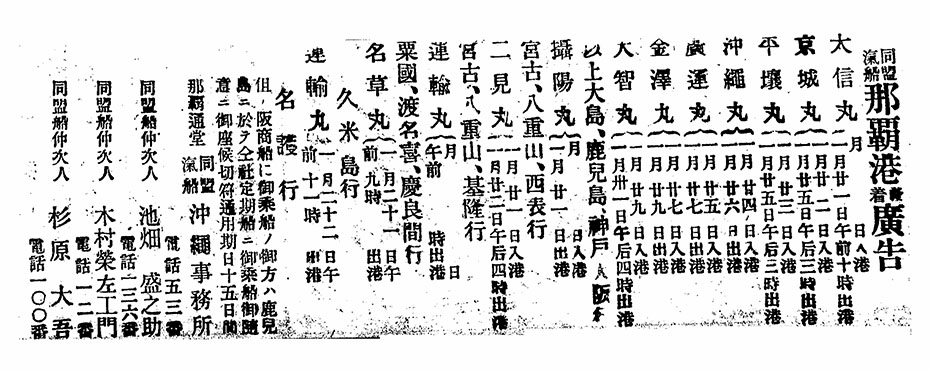 同盟汽船那覇港發着廣告
太信丸 月 日入港
一月廿一日午前十時出港
京城丸 一月廿二日入港
一月廿五日午后三時出港
平壤丸 一月廿三日入港
一月廿五日午后三時出港
沖繩丸 一月廿四日入港
一月廿六日出港
廣運丸 一月廿五日入港
一月廿七日出港
金澤丸 一月廿七日入港
一月廿九日出港
大智丸 一月廿九日入港
一月卅一日午后四時出港
以上大島、鹿兒島、神戸 大阪行
攝陽丸 月 日入港
一月廿一日出港
宮古、八重山、西表行
二見丸 一月廿一日入港
一月廿二日午后四時出港
宮古、八重山、基隆行
連輸丸 月 日
午前 時出港
粟國、渡名喜、慶良間行
名草丸 一月二十一日午
前九時 出港
久米島行
連輸丸 一月二十二日午
前十一時 出港
名護行
但 阪商船に御乘船ノ御方ハ鹿兒
島ニ於テ仝社定期船ニ御乘船御隨
意ニ御座候切符通用期日十五日間
那覇通堂 同盟汽船 沖繩事務所
電話一五三番
同盟船仲次人 池畑盛之助
電話一三六番
同盟船仲次人 木村榮左工門
電話一一二番
同盟船仲次人 杉原大吾
電話一〇〇番